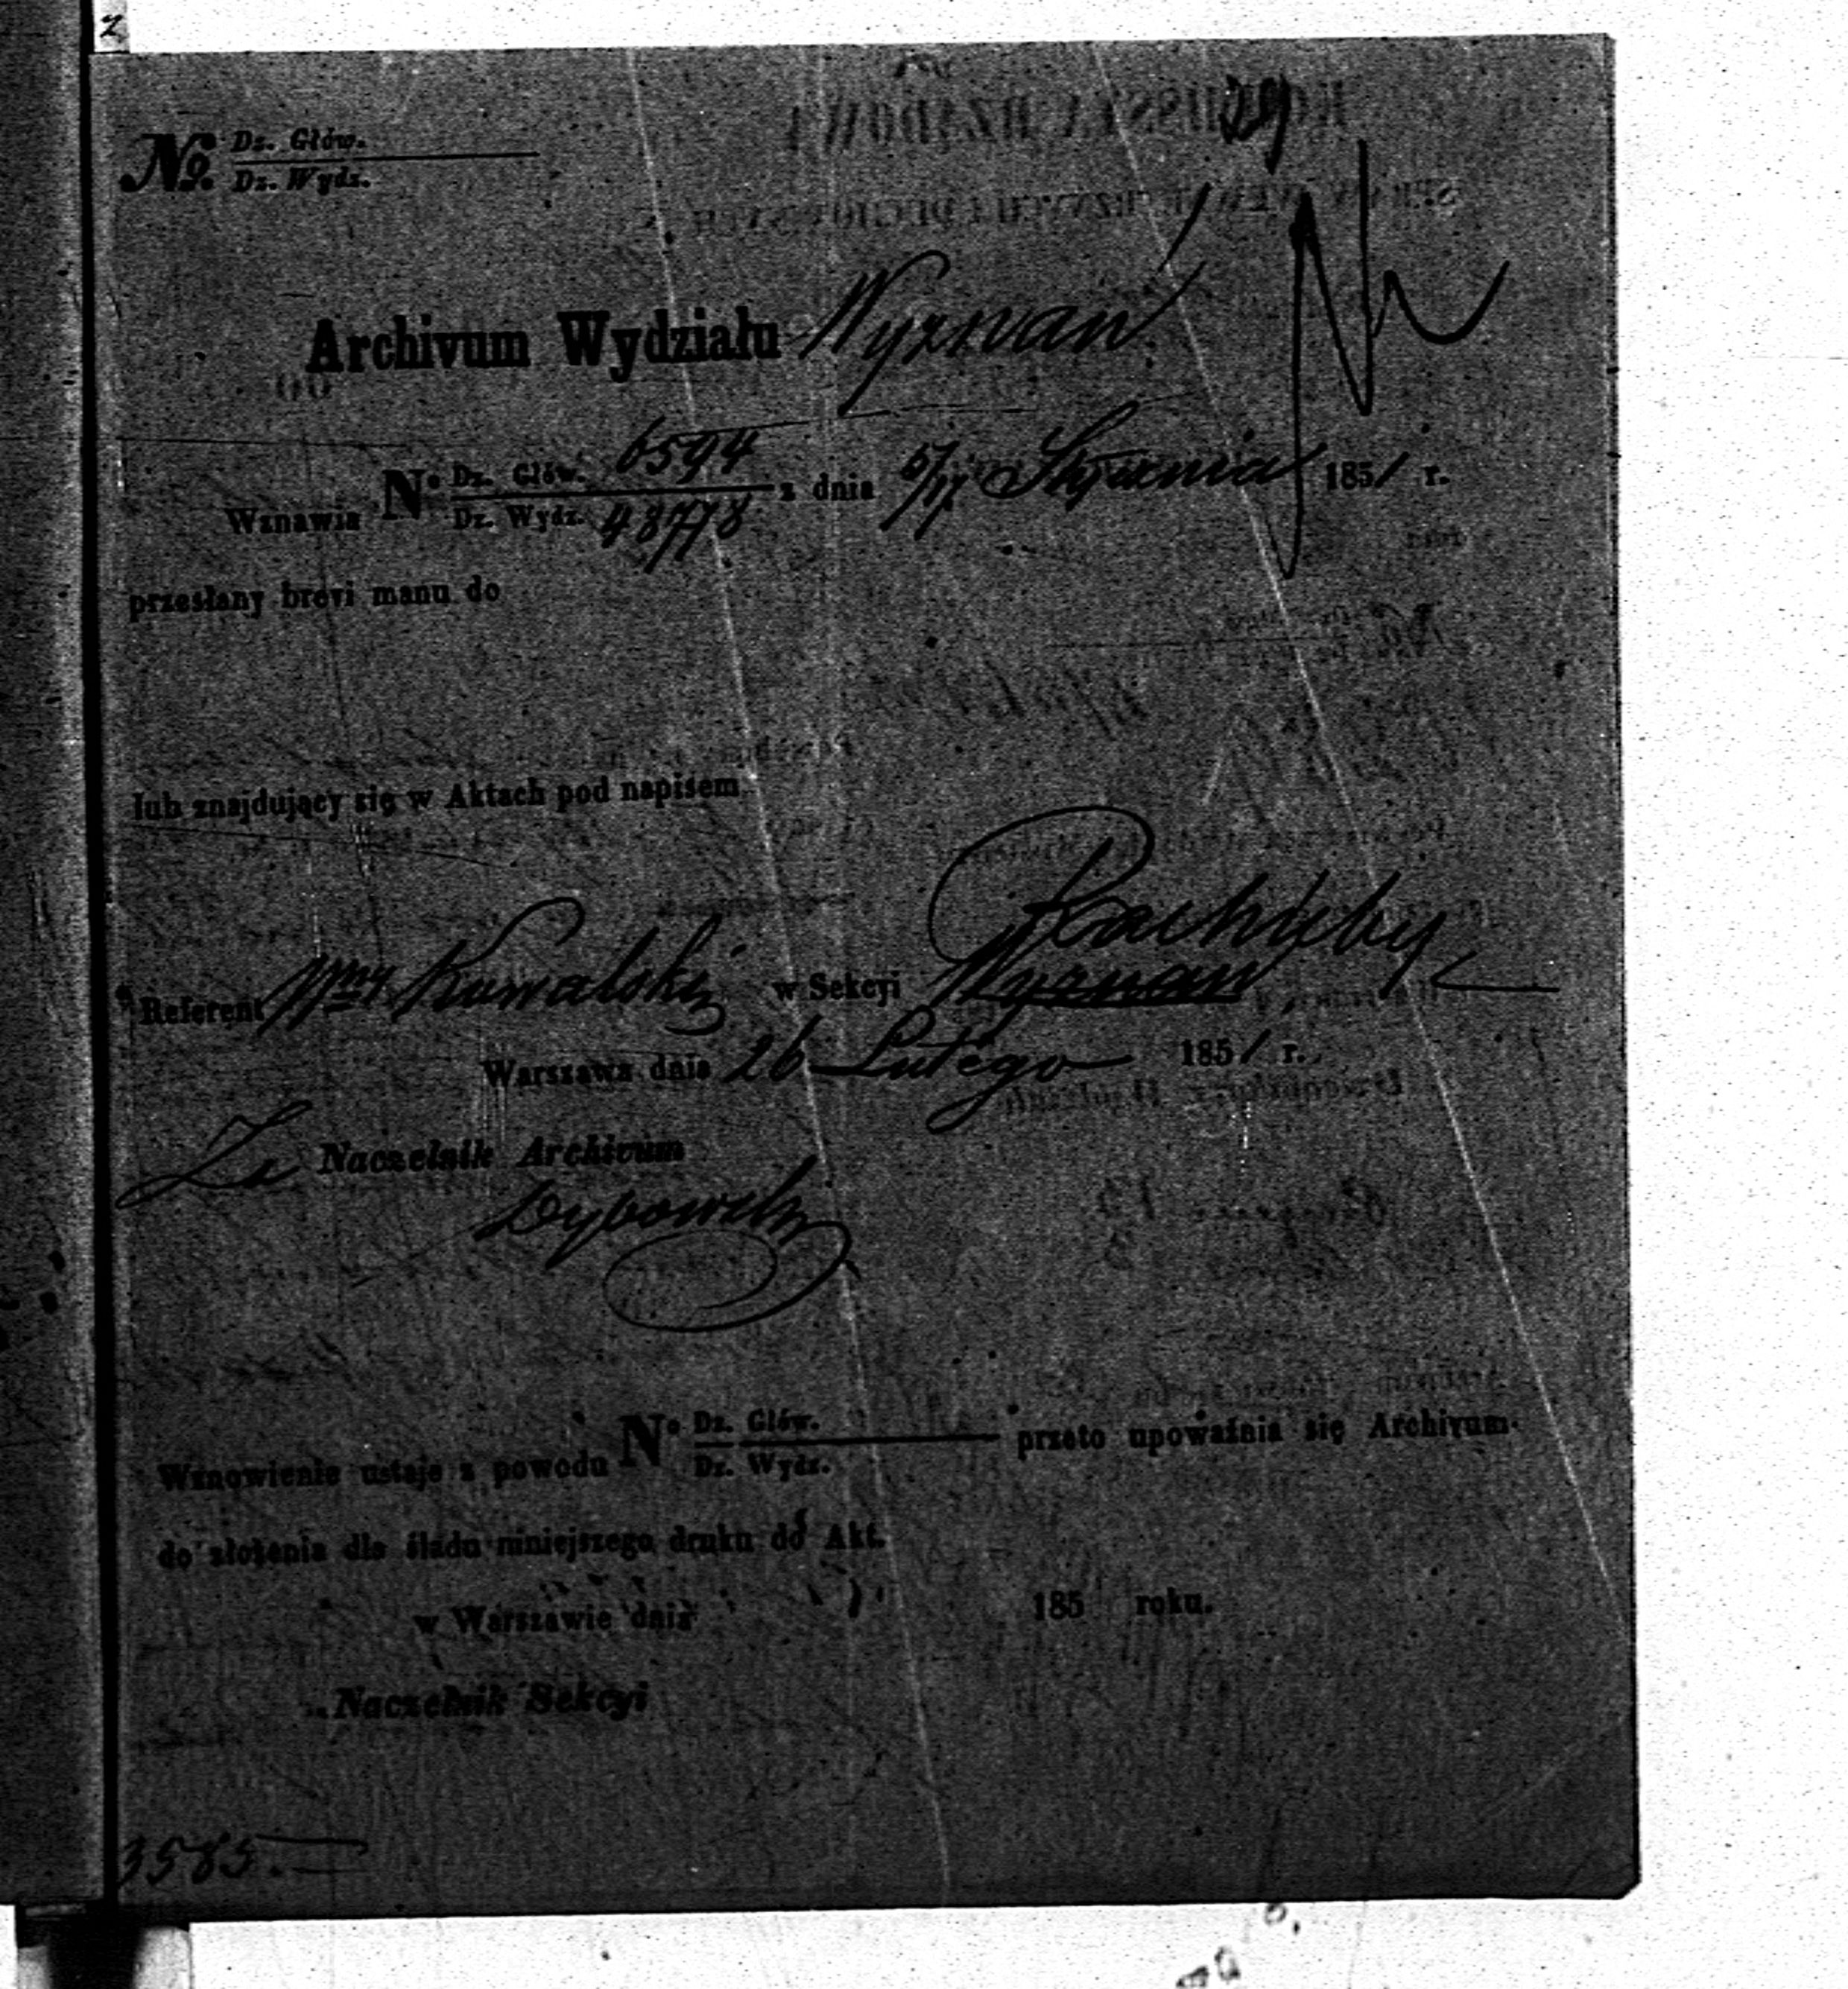 2
59
No. Dz. Głów.
Dz. Wydz.
Archivum Wydziału Wyznań
Wznawia No Dz. Głów. 6594 z dnia 5/17 Stycznia 1851 r.
Dz. Wydz. 48778
przesłany brevi manu do
lub znajdujący się w Aktach pod napisem
Rachuby
Referent Kowalski w Sekcyi Wyznań
Warszawa dnia 26 Lutego 1851 r.
Za Naczelnik Archivum
Dybowski
Wznowienie ustaje z powodu No Dz. Głów. przeto upoważnia się Archivum
Dz. Wydz.
do złożenia dla śladu niniejszego druku do Akt.
w Warszawie dnia 185 roku.
Naczelnik Sekcyi
3585.